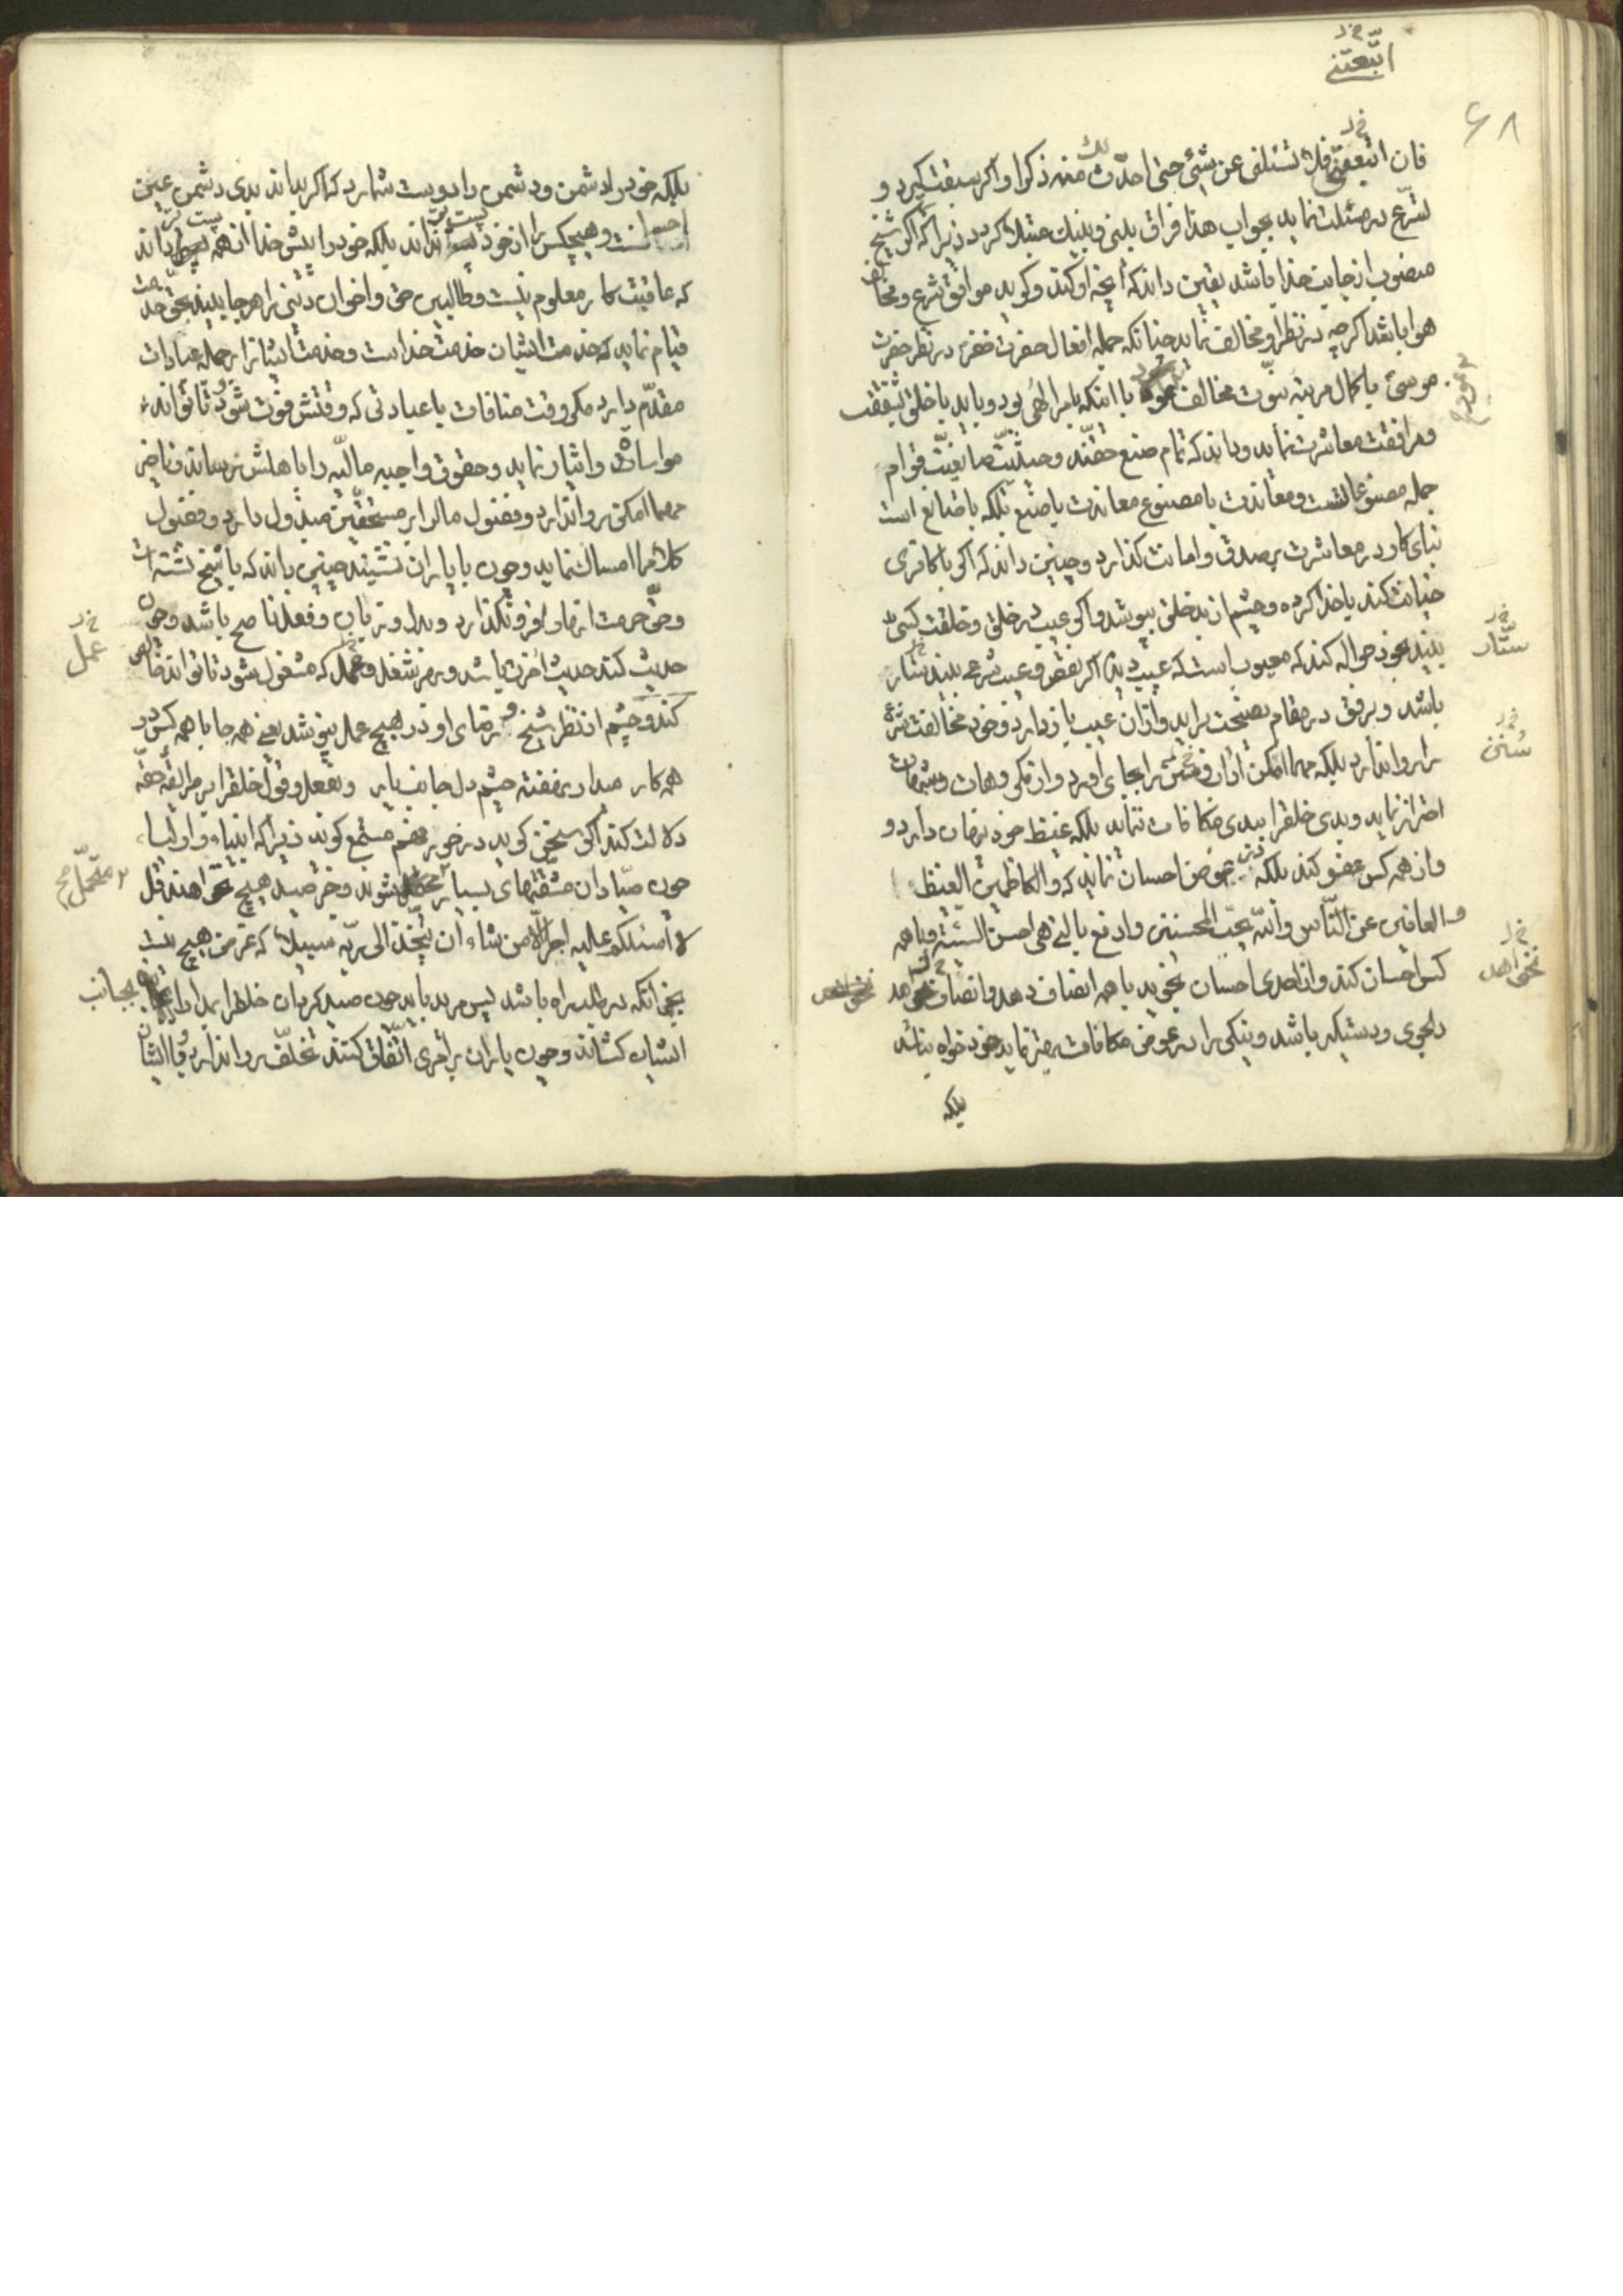 اتّبعتنی
۶۸
فان اتبعتنی فلا تسئلنی عن شیٔ حتی احدث لک منه ذکرا و اکر سبقت کیرد و
بشرع در مسئلت نماید بجواب هذا فراق بینی و بینک مبتلا کردد زیرا که اکر شیخ
منصوب از جانب خدا باشد یقین داند که آنچه او کند و کوید موافق شرع و مخالف
هوا باشد اکرچه در نظر او مخالف نماید چنانکه جمله افعال حضرت خضر در نظر حضرت
موسی با کمال مرتبه نبوّت مخالف نمود با اینکه بامر الهی بود و باید با خلق بشفقت
و مرافقت معاشرت نماید و داند که تمام صنع حقّند و حیثیّت صانعیّت قوام
جمله مصنوعاتست و معاندت با مصنوع معاندت با صنع بلکه با صانع است
بنای کار در معاشرت بر صدق و امانت کذارد و چنین داند که اکر با کافری
خیانت کند با خدا کرده و چشم از بد خلق بپوشد و اکر عیب در خلق و خلقت کسی
بیند بخود حواله کند که معیوب است که عیب دید اکر نقص و عیب شرعی بیند ستّار
باشد و برفق در مقام نصیحت براید و از ان عیب باز دارد و خود مخالفت شرع
را روا ندارد بلکه مهما امکن اداب و سنن را بجای اورد و از مکروهات و شبهات
احتراز نماید و بدی خلق را ببدی مکافات ننماید بلکه غیظ خود پنهان دارد و
و از همه کس عفو کند بلکه در عوض احسان نماید که و الکاظمین الغیظ
و العافین عن النّاس و اللّه یحبّ المحسنین و ادفع بالتی هی احسن السیّئة و با همه
کس احسان کند و از احدی احسان نجوید با همه انصاف دهد و انصاف نخواهد
دلجوی و دستکیر باشد و نیکی را در عوض مکافات بهتر نماید خود خواه نباشد
بلکه
ستّار
سُنن
نخواهد
بلکه خود را دشمن و دشمن را دوست شمارد که اکر بداند بدی دشمن عین
احسانست و هیچکس را از خود پست تر نداند بلکه خود را پیش خدا از همه پست تر داند
که عاقبت کار معلوم نیست و طالبین حق و اخوان دینی را هر جا بیند بحق خدمت
قیام نماید که خدمت ایشان خدمت خداست و خدمت ایشانرا بر جمله عبادات
مقدّم دارد مکر وقت منافات با عبادتی که وقتش فوت شود و تا تواند
مواسات و ایثار نماید و حقوق واجبه مالیّه را باهلش برساند و ناخیر
مهما امکن روا ندارد و فضول مال را بر مستحقّین مبذول دارد و فضول
کلام را امساک نماید و چون با یاران نشیند چنین داند که با شیخ نشسته است
و حقّ حرمت انها را فرو نکذارد و بدل و زبان و فعل ناصح باشد و چون
حدیث کند حدیث اخرت باشد و بهر شغل و عمل که مشغول شود تا تواند خالص
کند و چشم از نظر شیخ و رضای او در هیچ عمل نپوشد یعنی همه جا با همه کس در
همه کار میدار نهفته چشم دل جانب یار و بفعل و قول خلق را بر طریقه حقّه
دلالت کند اکر سخن کوید در خور فهم مستمع کوید زیرا که انبیاء و اولیاء
چون صیّادان مشقّتهای بسیار متحمّل شوند و جز صید هیچ نخواهند قل
لا اسئلکم علیه اجرا الّا من شاء ان یتّخذ الی ربّه سبیلا که غرض هیچ نیست
بجز انکه در طلب راه باشد پس مرید باید چون صید کردن خلق را بمدارا بجانب
ایشان کشاند و چون یاران بر امری اتّفاق کنند تخلّف روا ندارد و با ایشان
عمل
متحمّل
بجانب